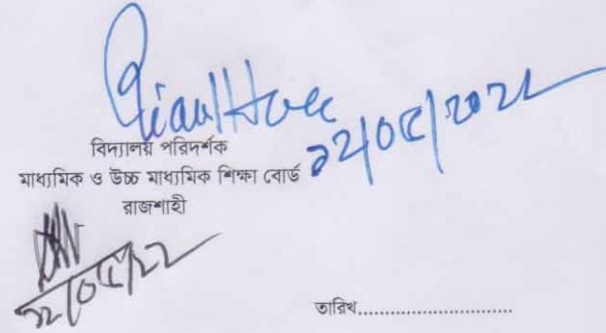 ১২/০৫/২০২২
বিদ্যালয় পরিদর্শক
মাধ্যমিক ও উচ্চ মাধ্যমিক শিক্ষা বোর্ড
রাজশাহী
১২/০৫/২২
তারিখ..............................